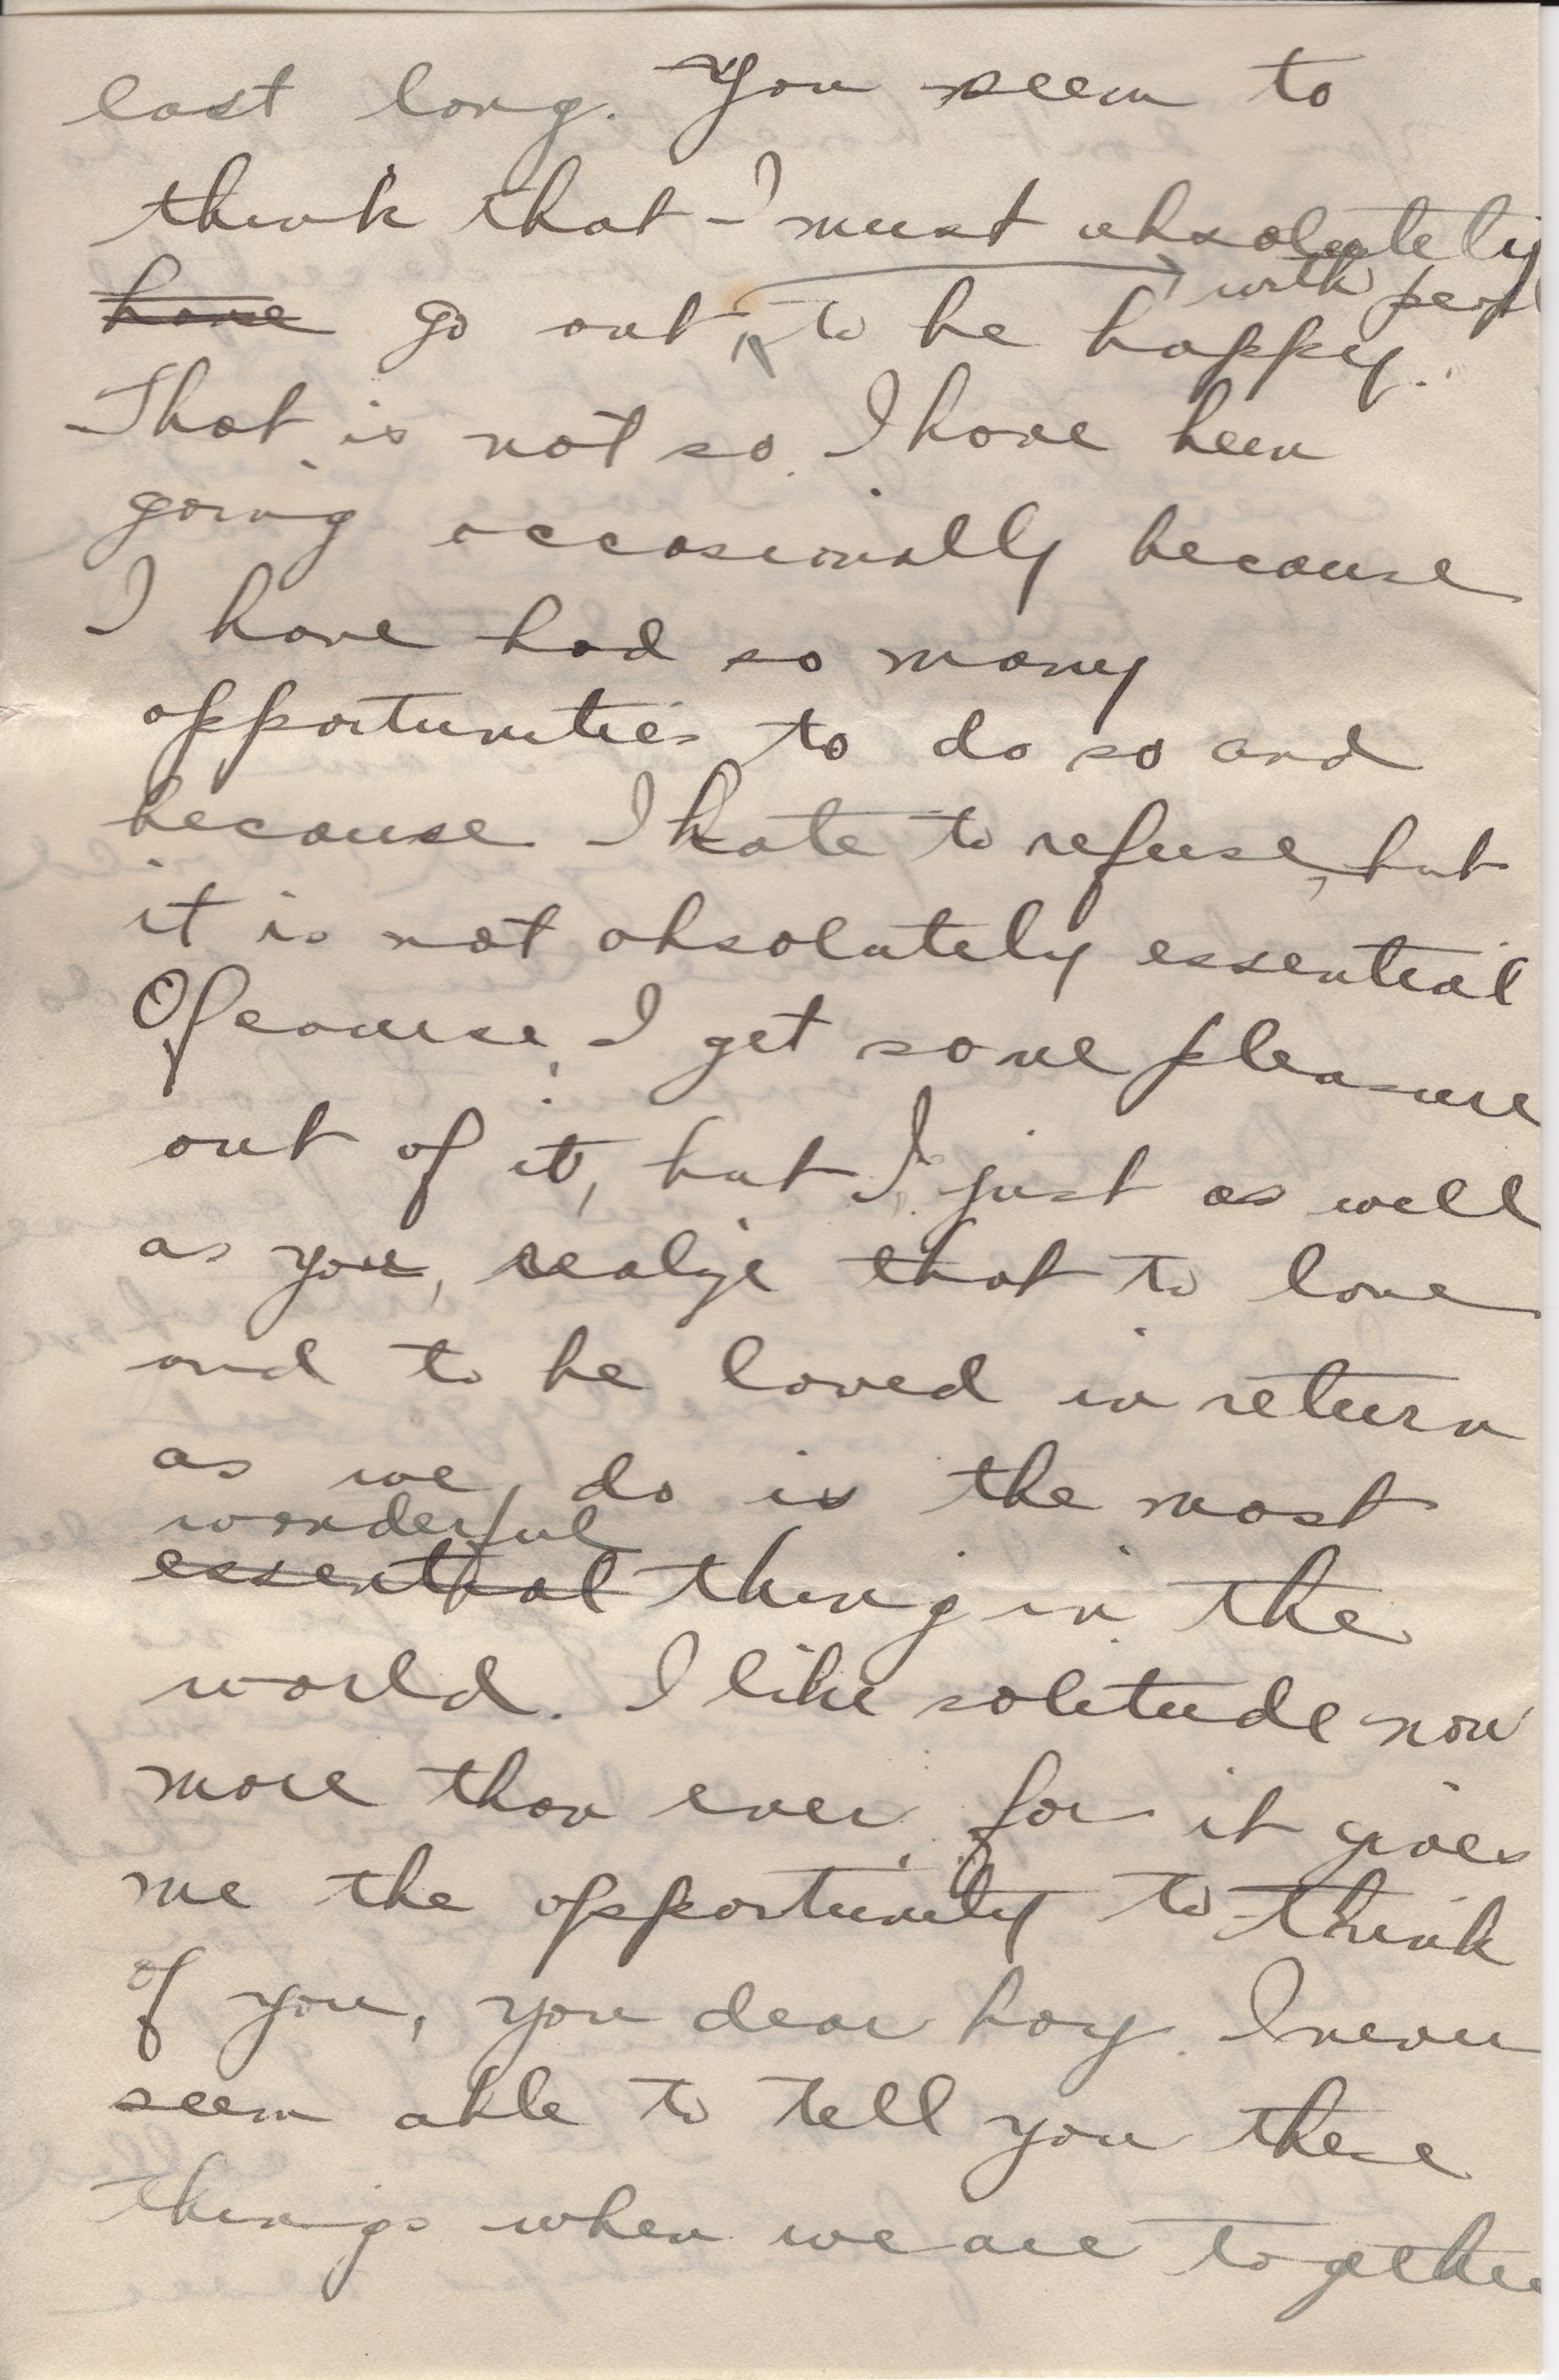 last long. You seem to
think that I must absolutely
with peop
have go out to be happy.
That is not so. I have been
going occasionally because
I have had so many
opportunities to do so and
because I hate to refuse, but
it is not absolutely essential
Of course, I get some pleasure
out of it, but I, just as well
as you, realize that to love
and to be loved in return
as we do is the most
wonderful
essential thing in the
world. I like solitude now
more than ever, for it gives
me the opportunity to think
of you, you dear boy. I never
seem able to tell you these
things when we are together